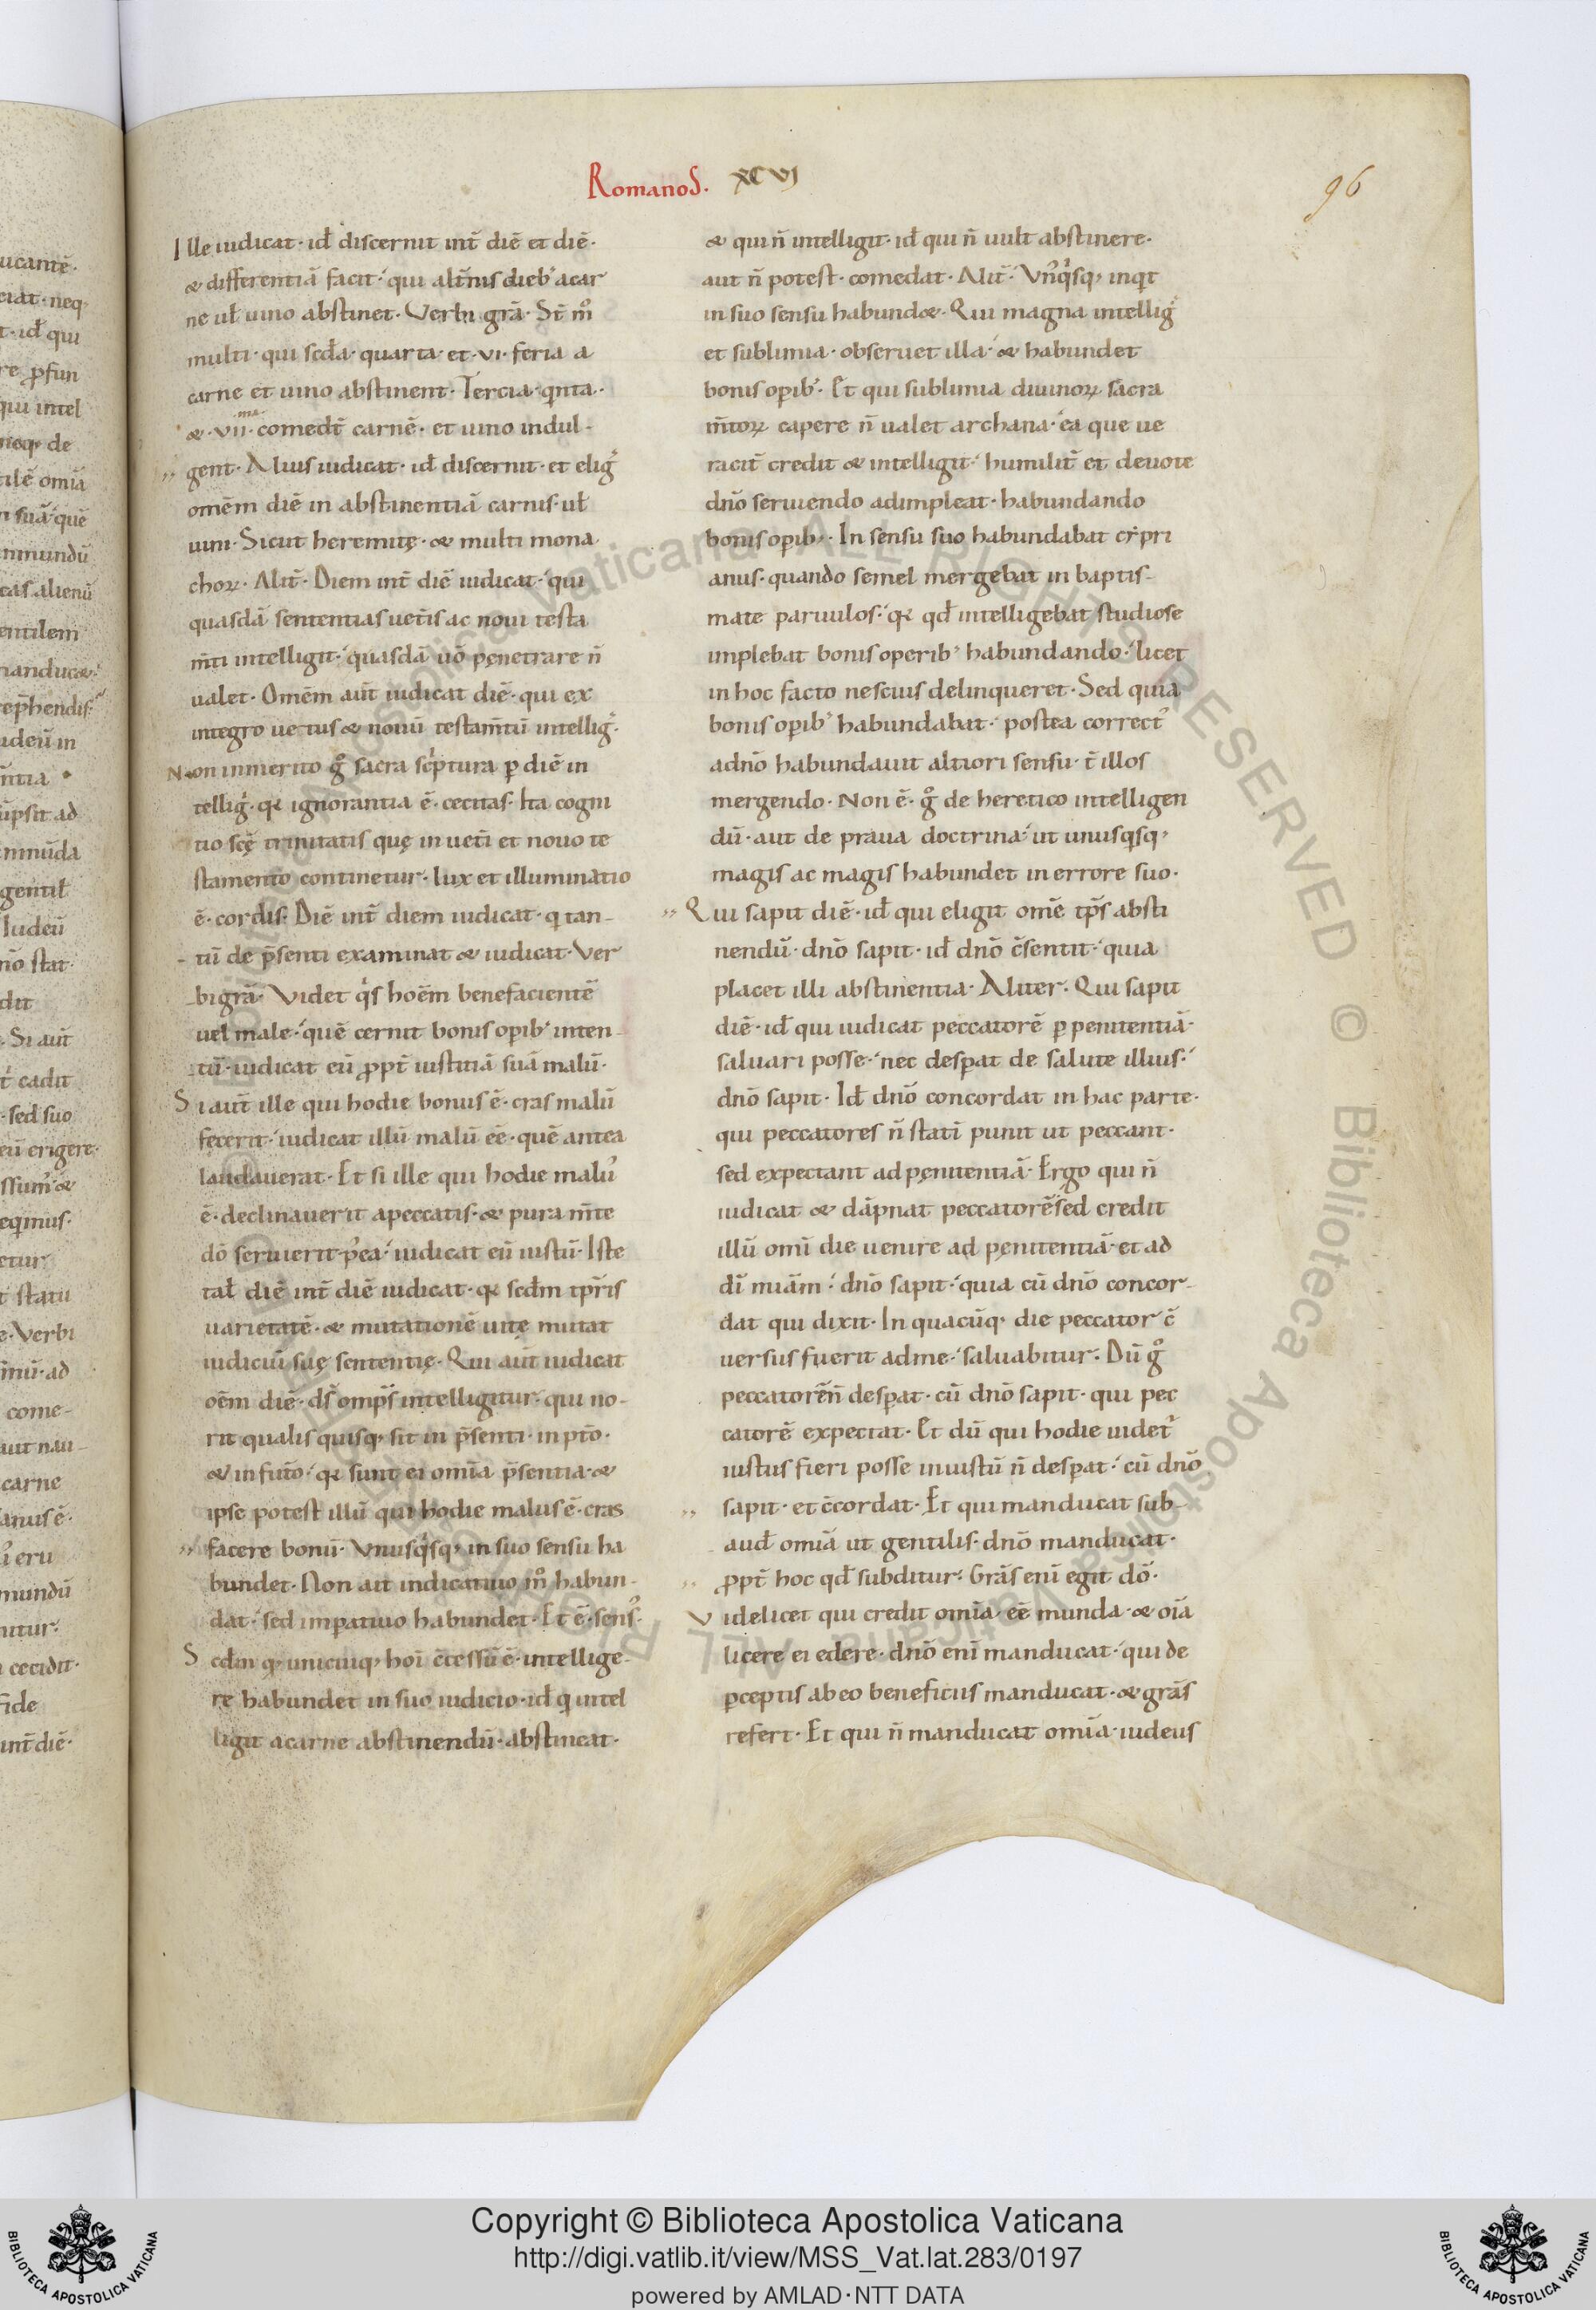 Romanos. XCVI
96
Ille iudicat· id̄ discernit int̄ diē et diē·
& differentiā facit· qui alt̄nis dieb᾽ a car
ne ul̄ uino abstinet· Verbi grā· St̄ m̊
multi· qui scd̄a· quarta· et· vi· feria a
carne et uino abstinent· Tercia· qnta·
&· vii·ma comedt̄ carnē· et uino indul-
gent· Alius iudicat· id̄ discernit· et elig᾽
omēm diē in abstinentiā carnis· ul̄
uini· Sicut heremitę· & multi mona
choꝝ· Alit̄· Diem int̄ diē iudicat· qui
quasdā sententias uet̄is ac noui testa
m̄ti intelligit· quasdā uō penetrare n̄
ualet· Omēm aut̄ iudicat diē· qui ex
integro uetus & nouū testam̄tū intellig᾽·
Non inmerito g̊ sacra scͥptura ꝑ diē in
tellig᾽· qꝛ ignorantia ē· cecitas· Ita cogni
tio scę̄ trinitatis quę in uet̄i et nouo te
stamento continetur· lux et illuminatio
ē· cordis· Diē int̄ diem iudicat· q tan-
tū de p̄senti examinat & iudicat· Ver
bi grā· Videt qͥs hoēm benefacientē
uel male· quē cernit bonis oꝑib᾽ inten-
tū· iudicat eū ꝓpt̄ iustitiā suā malū·
Si aut̄ ille qui hodie bonus ē· cras malū
fecerit· iudicat illū malū eē· quē antea
laudauerat· Et si ille qui hodie malu᾽
ē· declinauerit a peccatis· & pura m̄te
dō seruierit p᾽ea· iudicat eū iustū· Iste
tal̄ diē int̄ diē iudicat· qꝛ scd̄m tꝑr̄is
uarietatē· & mutationē uitę mutat
iudiciū suę sententię· Qui aut̄ iudicat
oēm diē· ds̄ omp̄s intelligitur· qui no-
rit qualis quisq· sit in p̄senti· in pt̄o·
& in fut̄o· qꝛ sunt ei omīa p̄sentia· &
ipse potest illū qui hodie malus ē· cras
facere bonū· Vnusqͥsq· in suo sensu ha
bundet· Non ait indicatiuo m̊ habun-
dat· sed imꝑatiuo habundet· Et ē· sens᾽·
Scd̄m q· unicuiq· hoī c̄cessū ē· intellige-
re habundet in suo iudicio· id̄ q intel
ligit a carne abstinendū· abstineat·
& qui n̄ intelligit· id̄ qui n̄ uult abstinere·
aut n̄ potest· comedat· Alit̄· Vn᾽qͥsq· inqt
in suo sensu habund&· Qui magna intellig᾽
et sublimia· obseruet illa· & habundet
bonis oꝑib᾽· Et qui sublimia diuinoꝝ sacra
m̄toꝝ capere n̄ ualet archana· ea que ue
racit̄ credit & intelligit· humilit̄ et deuote
dn̄o seruiendo adimpleat· habundando
bonis oꝑib᾽· In sensu suo habundabat cẏpri
anus· quando semel mergebat in baptis-
mate paruulos· qꝛ qd̄ intelligebat studiose
implebat bonis operib᾽ habundando· licet
in hoc facto nescius delinqueret· Sed quia
bonis oꝑib᾽ habundabat· postea correct᾽
a dn̄o habundauit altiori sensu· t̄ illos
mergendo· Non ē· g̊ de heretico intelligen
dū· aut de praua doctrina· ut unusqsq·
magis ac magis habundet in errore suo·
Qui sapit diē· id̄ qui eligit omē tꝑs absti
nendū· dn̄o sapit· id̄ dn̄o c̄sentit· quia
placet illi abstinentia· Aliter· Qui sapit
diē· id̄ qui iudicat peccatorē ꝑ penitentiā·
saluari posse· nec desꝑat de salute illius·
dn̄o sapit· Id̄ dn̄o concordat in hac parte·
qui peccatores n̄ statī punit ut peccant·
sed expectant ad pęnitentiā· Ergo qui n̄
iudicat & dāpnat peccatorē sed credit
illū omī die uenire ad pęnitentiā· et ad
dī miām· dn̄o sapit· quia cū dn̄o concor-
dat qui dixit· In quacūq· die peccator c̄
uersus fuerit ad me· saluabitur· Dū g̊
peccatorē n̄ desꝑat· cū dn̄o sapit· qui pec
catorē expectat· Et dū qui hodie uidet᾽
iustus fieri posse iniustū n̄ desꝑat· cū dn̄o
sapit· et c̄cordat· Et qui manducat sub-
aud̄ omīa ut gentilis· dn̄o manducat·
ꝓpt̄ hoc qd̄ subditur· Grās enī egit dō·
Videlicet qui credit omīa· eē munda· & oīa
licere ei edere· dn̄o enī manducat· qui de
ꝑceptis ab eo beneficiis manducat· & grās
refert· Et qui n̄ manducat omīa· iudeus
Copyright © Biblioteca Apostolica Vaticana
http://digi.vatlib.it/view/MSS_Vat.lat.283/0197
powered by AMLAD·NTT DATA